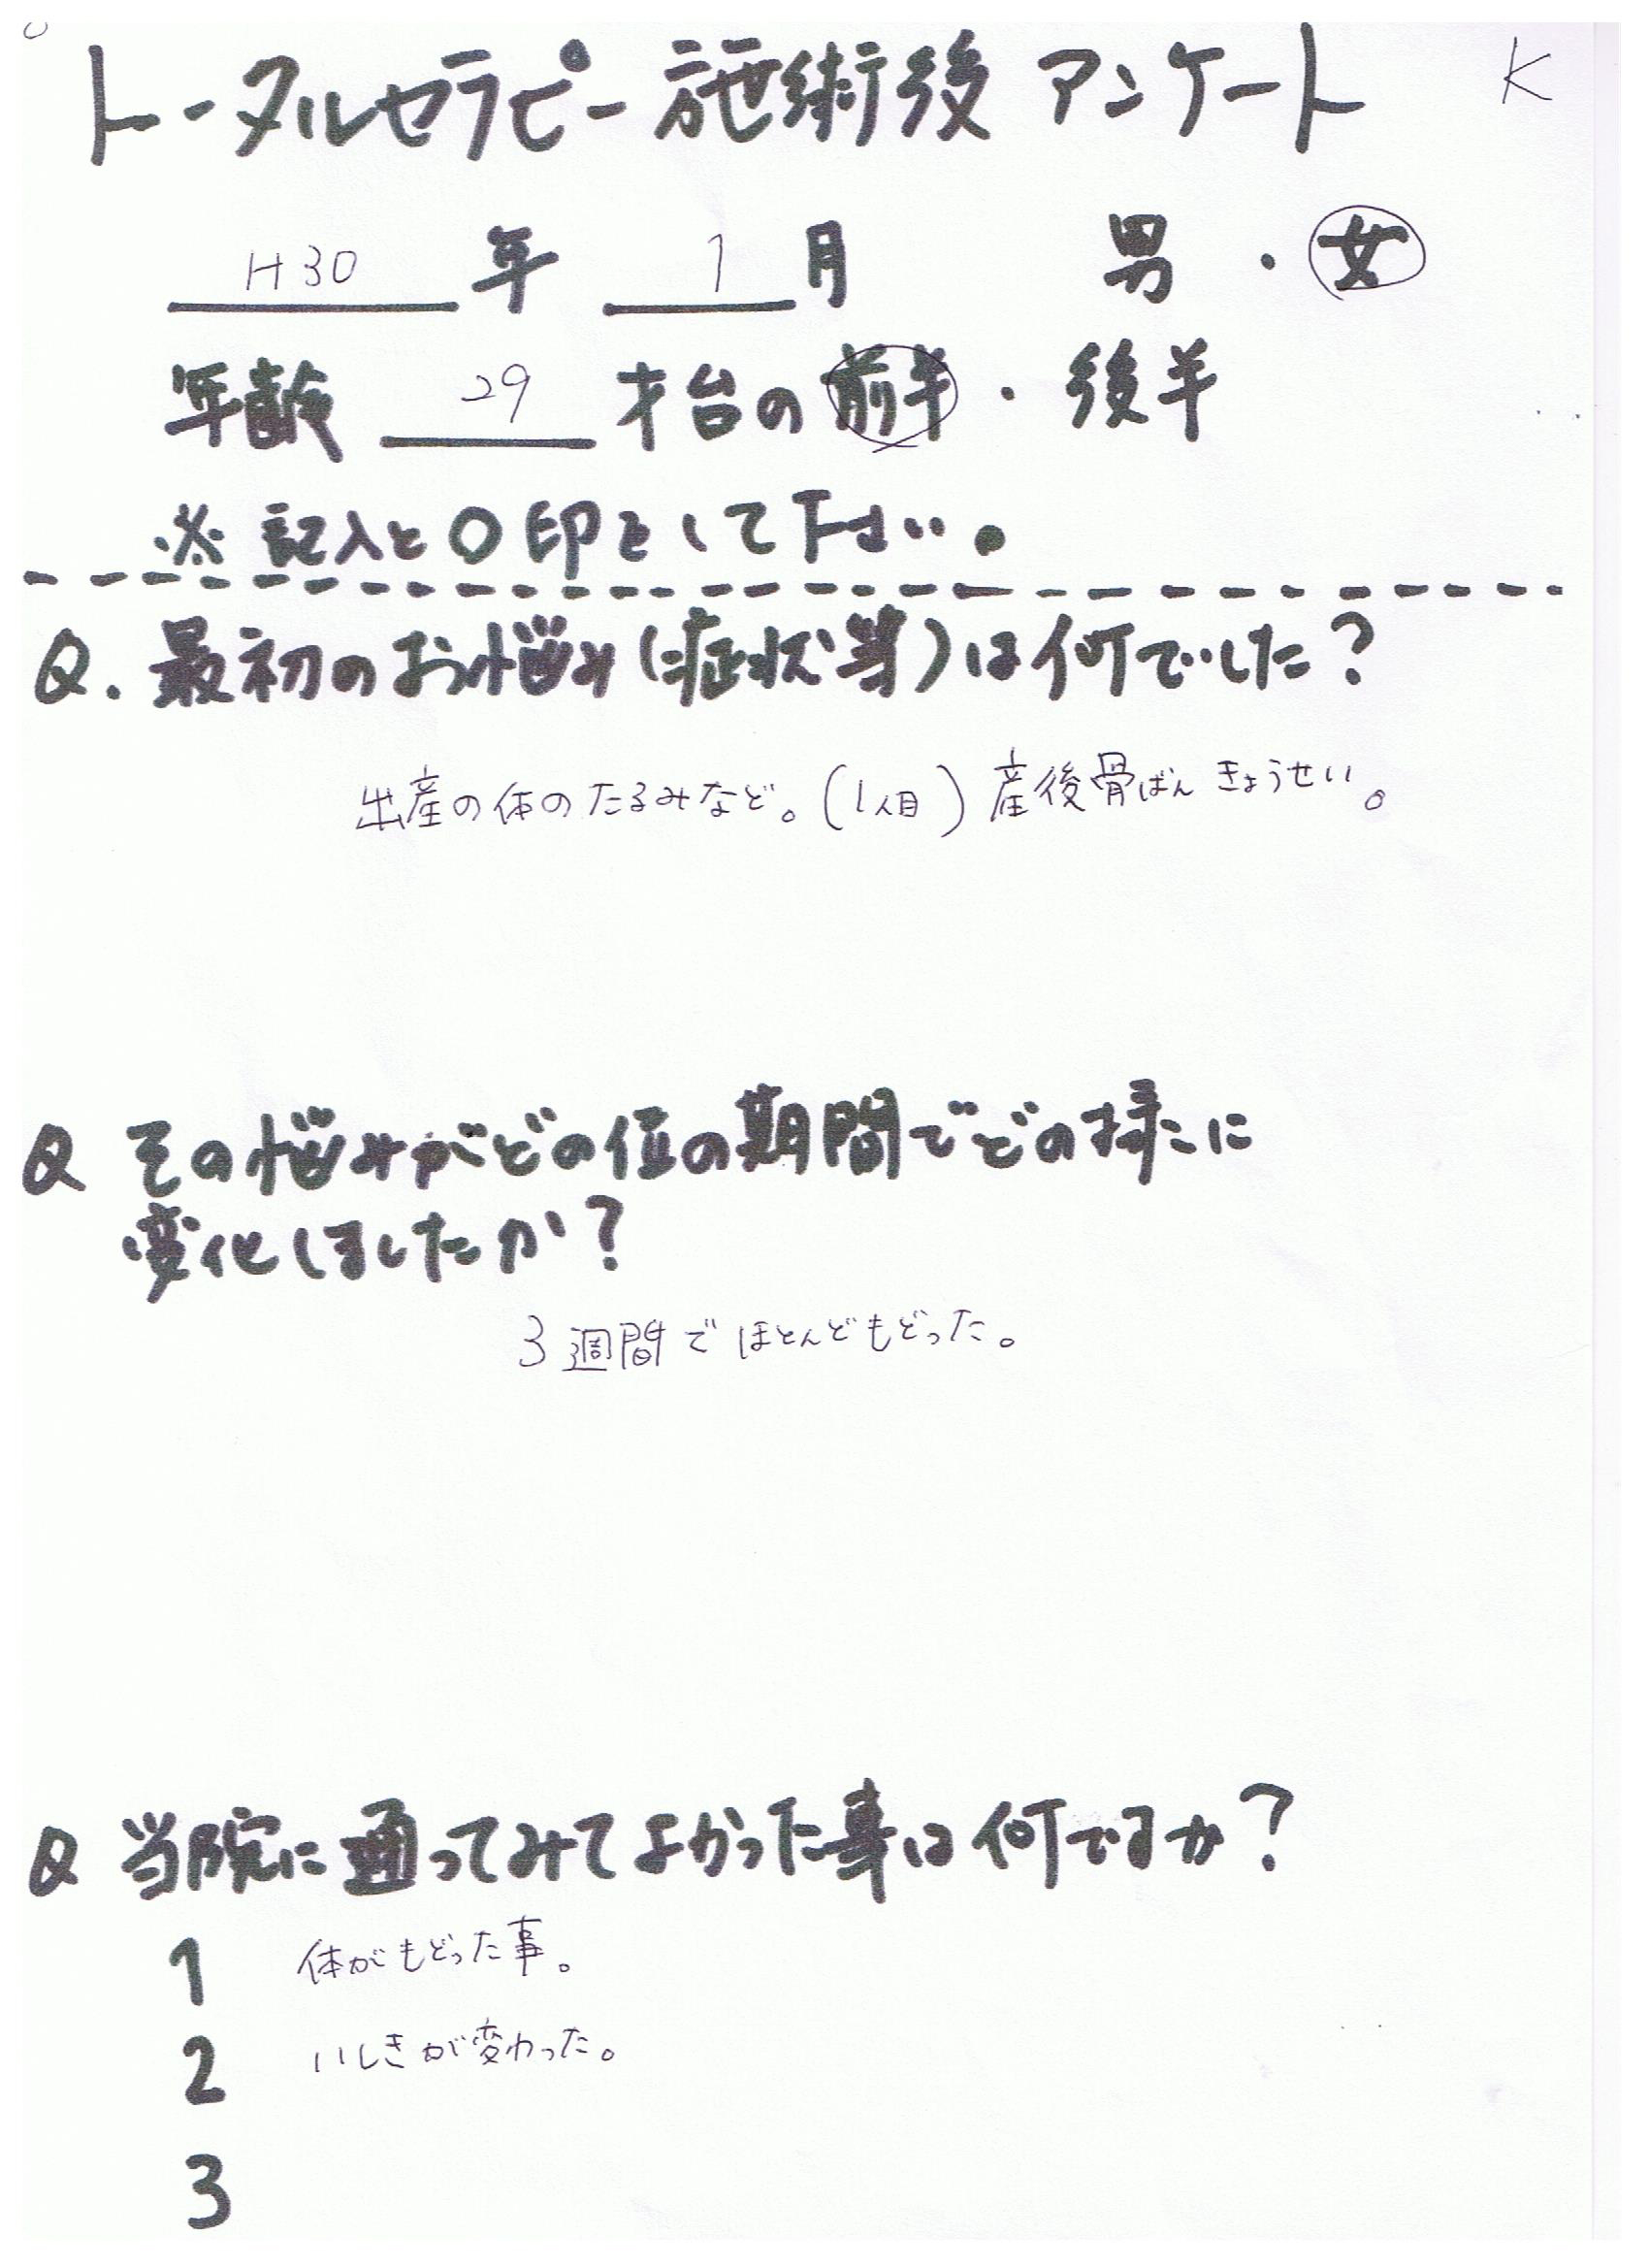 トータルセラピー施術後 アンケート K
H30 年 1 月 男 ・ 女
年齢 29 才台の 前半 ・ 後半
※ 記入と○印をして下さい。
Q. 最初のお悩み(症状等)は何でした?
出産の体のたるみなど。(1人目) 産後骨ばんきょうせい。
Q その悩みがどの位の期間でどの様に
変化しましたか?
3週間でほとんどもどった。
Q 当院に通ってみてよかった事は何ですか?
1 体がもどった事。
2 いしきが変わった。
3